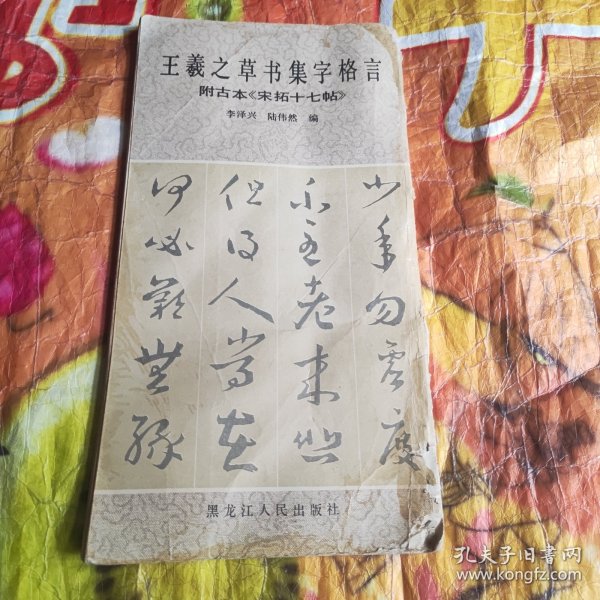 王羲之草书集字格言
附古本《宋拓十七帖》
李泽兴 陆伟然 编
少年勿虚度
老来
但得人常在
何必
黑龙江人民出版社
孔夫子旧书网
www.kongfz.com